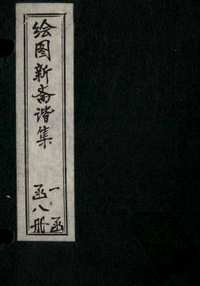 绘图新斋谐集
一函
函八册